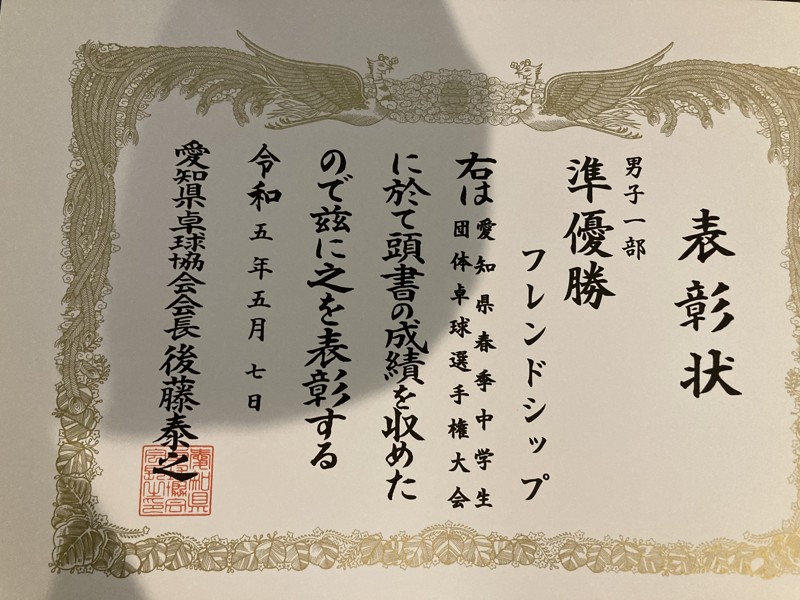 表彰状
男子一部
準優勝
フレンドシップ
右は愛知県春季中学生
団体卓球選手権大会
に於て頭書の成績を収めた
ので茲に之を表彰する
令和五年五月七日
愛知県卓球協会会長後藤泰之